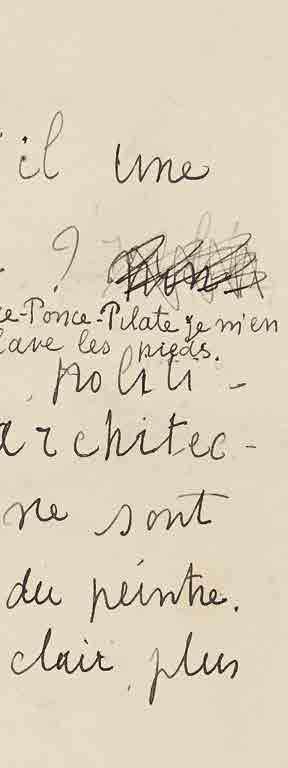 il une
?
ce-Ponce-Pilate je m'en
lave les pieds.
politi-
architec-
ne sont
du peintre.
clair, plus